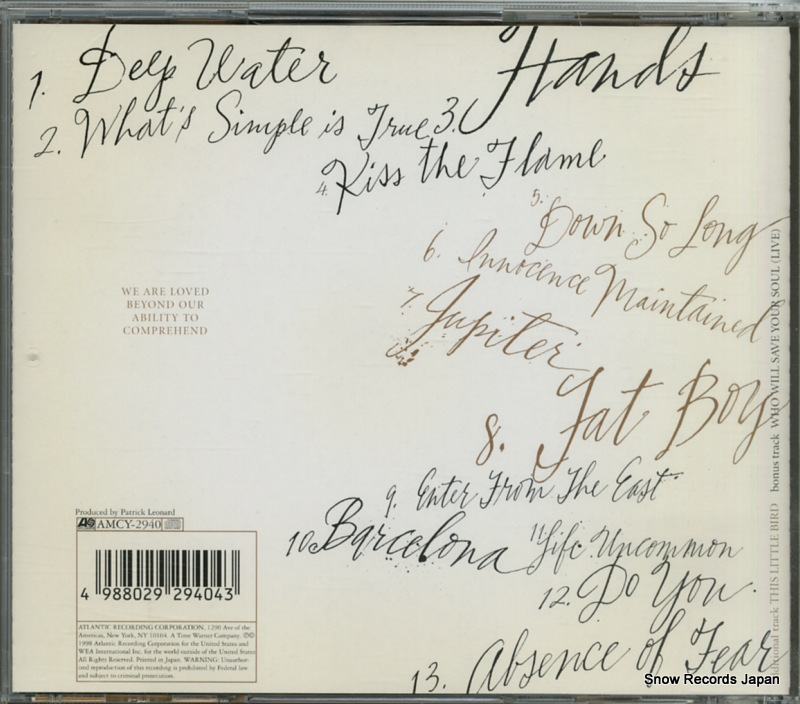 1. Deep Water
2. What's Simple is True
3. Hands
4. Kiss the Flame
5. Down So Long
6. Innocence Maintained
7. Jupiter
8. Fat Boy
9. Enter From The East
10. Barcelona
11. Life Uncommon
12. Do You
13. Absence of Fear
WE ARE LOVED
BEYOND OUR
ABILITY TO
COMPREHEND
Produced by Patrick Leonard
AMCY-2940
4 988029 294043
ATLANTIC RECORDING CORPORATION, 1290 Ave of the
Americas, New York, NY 10104. A Time Warner Company. ℗©
1998 Atlantic Recording Corporation for the United States and
WEA International Inc. for the world outside of the United States.
All Rights Reserved. Printed in Japan. WARNING: Unauthor-
ized reproduction of this recording is prohibited by Federal law
and subject to criminal prosecution.
track THIS LITTLE BIRD bonus track WHO WILL SAVE YOUR SOUL (LIVE)
Snow Records Japan